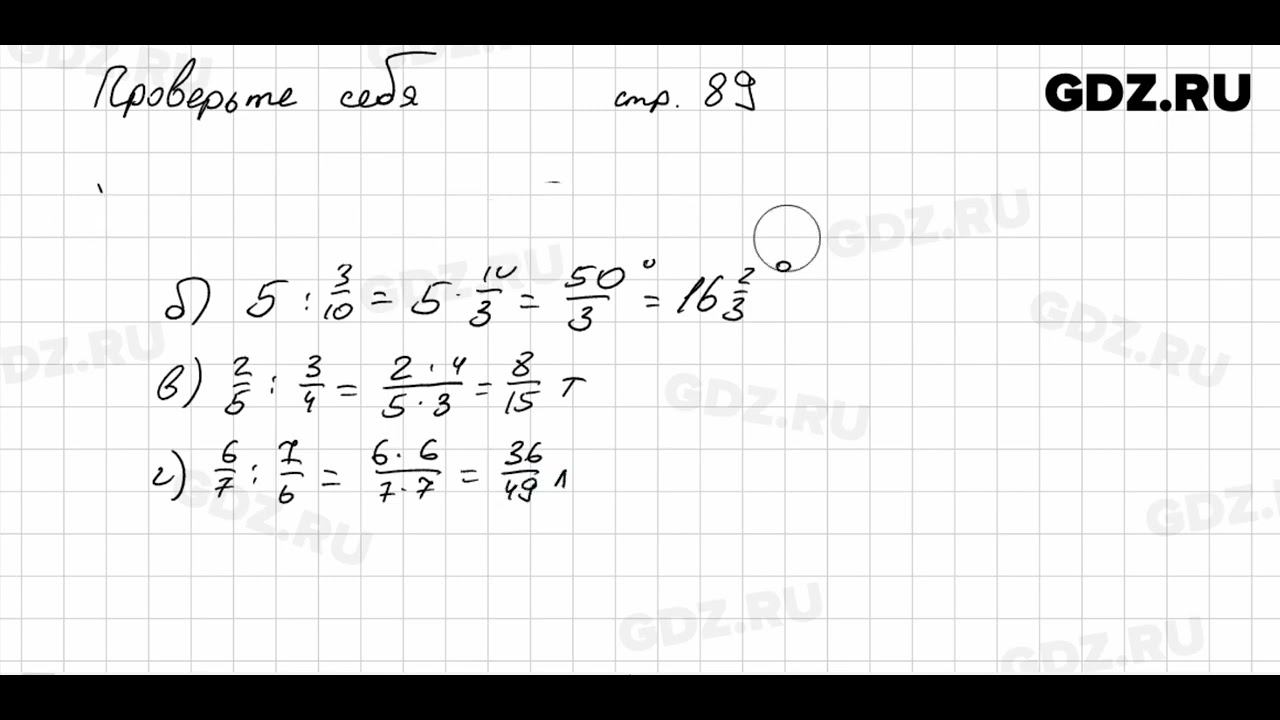 Проверьте себя стр. 89 GDZ.RU
б) 5 : 3/10 = 5 · 10/3 = 50/3° = 16 2/3°
в) 2/5 : 3/4 = 2 · 4/5 · 3 = 8/15 т
г) 6/7 : 7/6 = 6 · 6/7 · 7 = 36/49 л
GDZ.RU
GDZ.RU
GDZ.RU
GDZ.RU
GDZ.RU
GDZ.RU
GDZ.RU
GDZ.RU
GDZ.RU
GDZ.RU
GDZ.RU